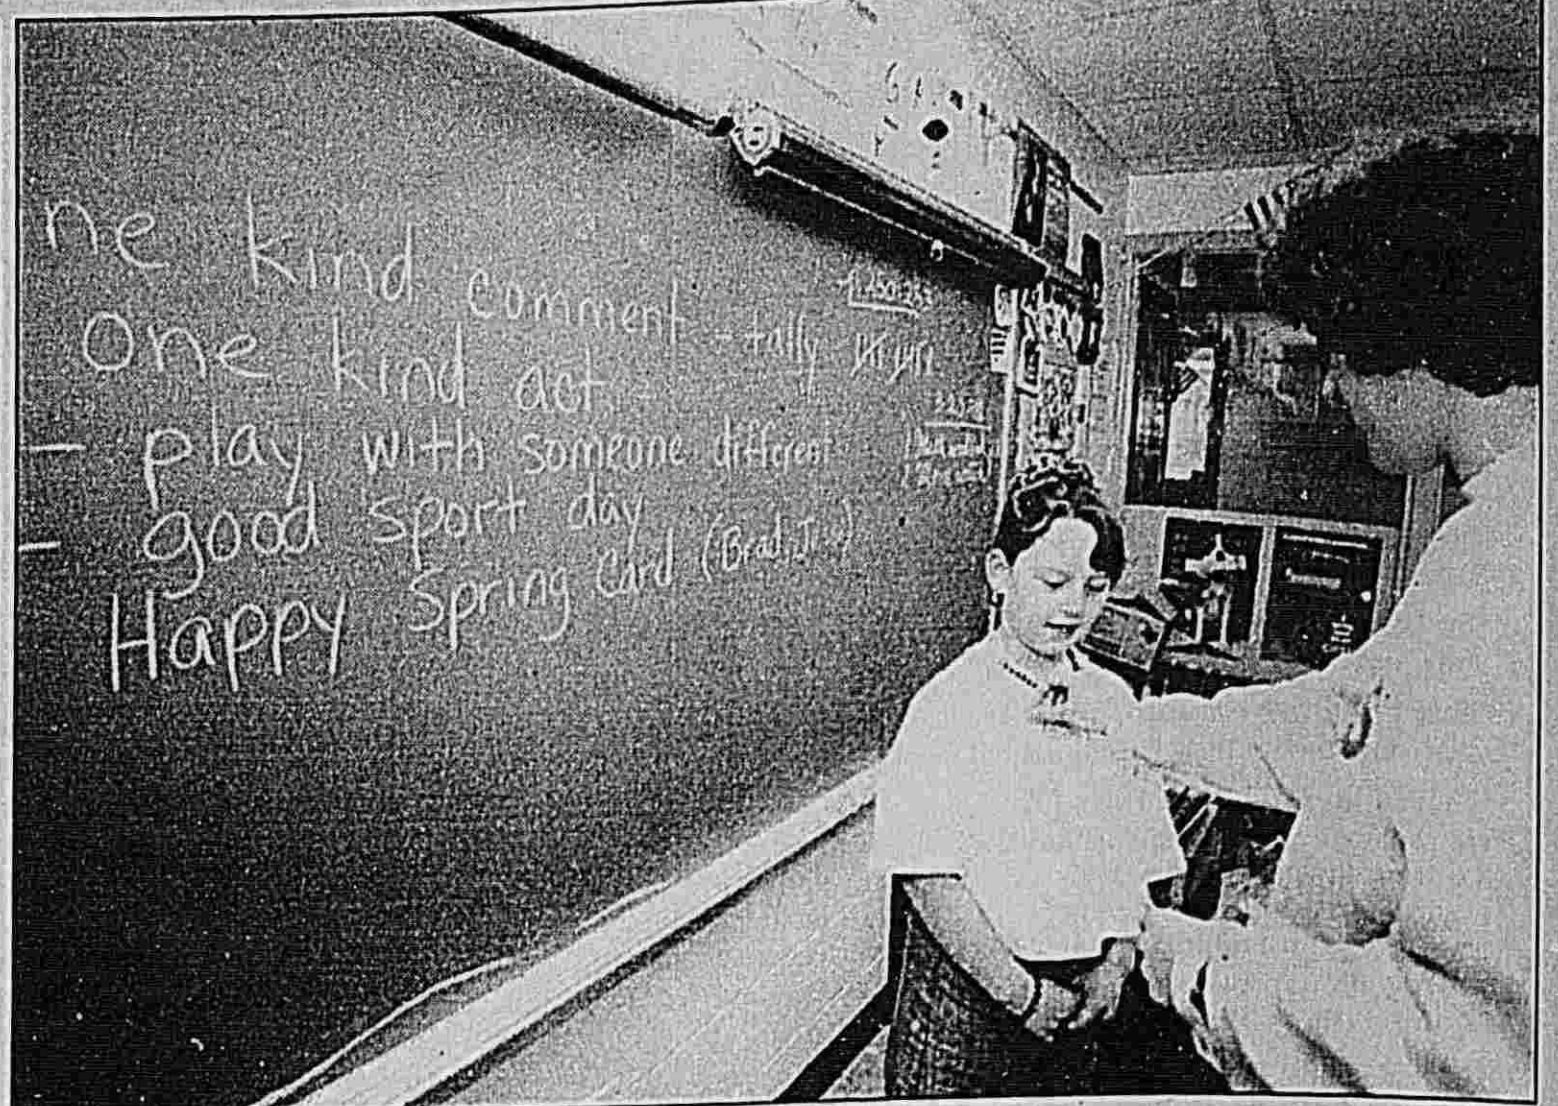 ne kind comment - tally
One kind act -
- play with someone different
- good sport day
Happy Spring Card (Brad,